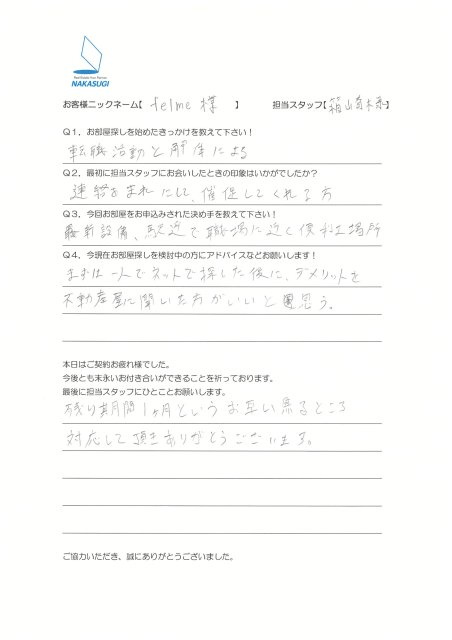 NAKASUGI
お客様ニックネーム【 felme 様 】 担当スタッフ【 】
Q1，お部屋探しを始めたきっかけを教えて下さい！
転職活動と解体による
Q2，最初に担当スタッフにお会いしたときの印象はいかがでしたか？
連絡をまめにして、催促してくれる方
Q3，今回お部屋をお申込みされた決め手を教えて下さい！
最新設備、駅近で職場に近く便利な場所
Q4，今現在お部屋探しを検討中の方にアドバイスなどお願いします！
まずは一人でネットで探した後に、デメリットを
不動産屋に聞いた方がいいと思う。
本日はご契約お疲れ様でした。
今後とも末永いお付き合いができることを祈っております。
最後に担当スタッフにひとことお願いします。
残り期間1ヶ月というお互い焦るところ
対応して頂きありがとうございます。
ご協力いただき、誠にありがとうございました。